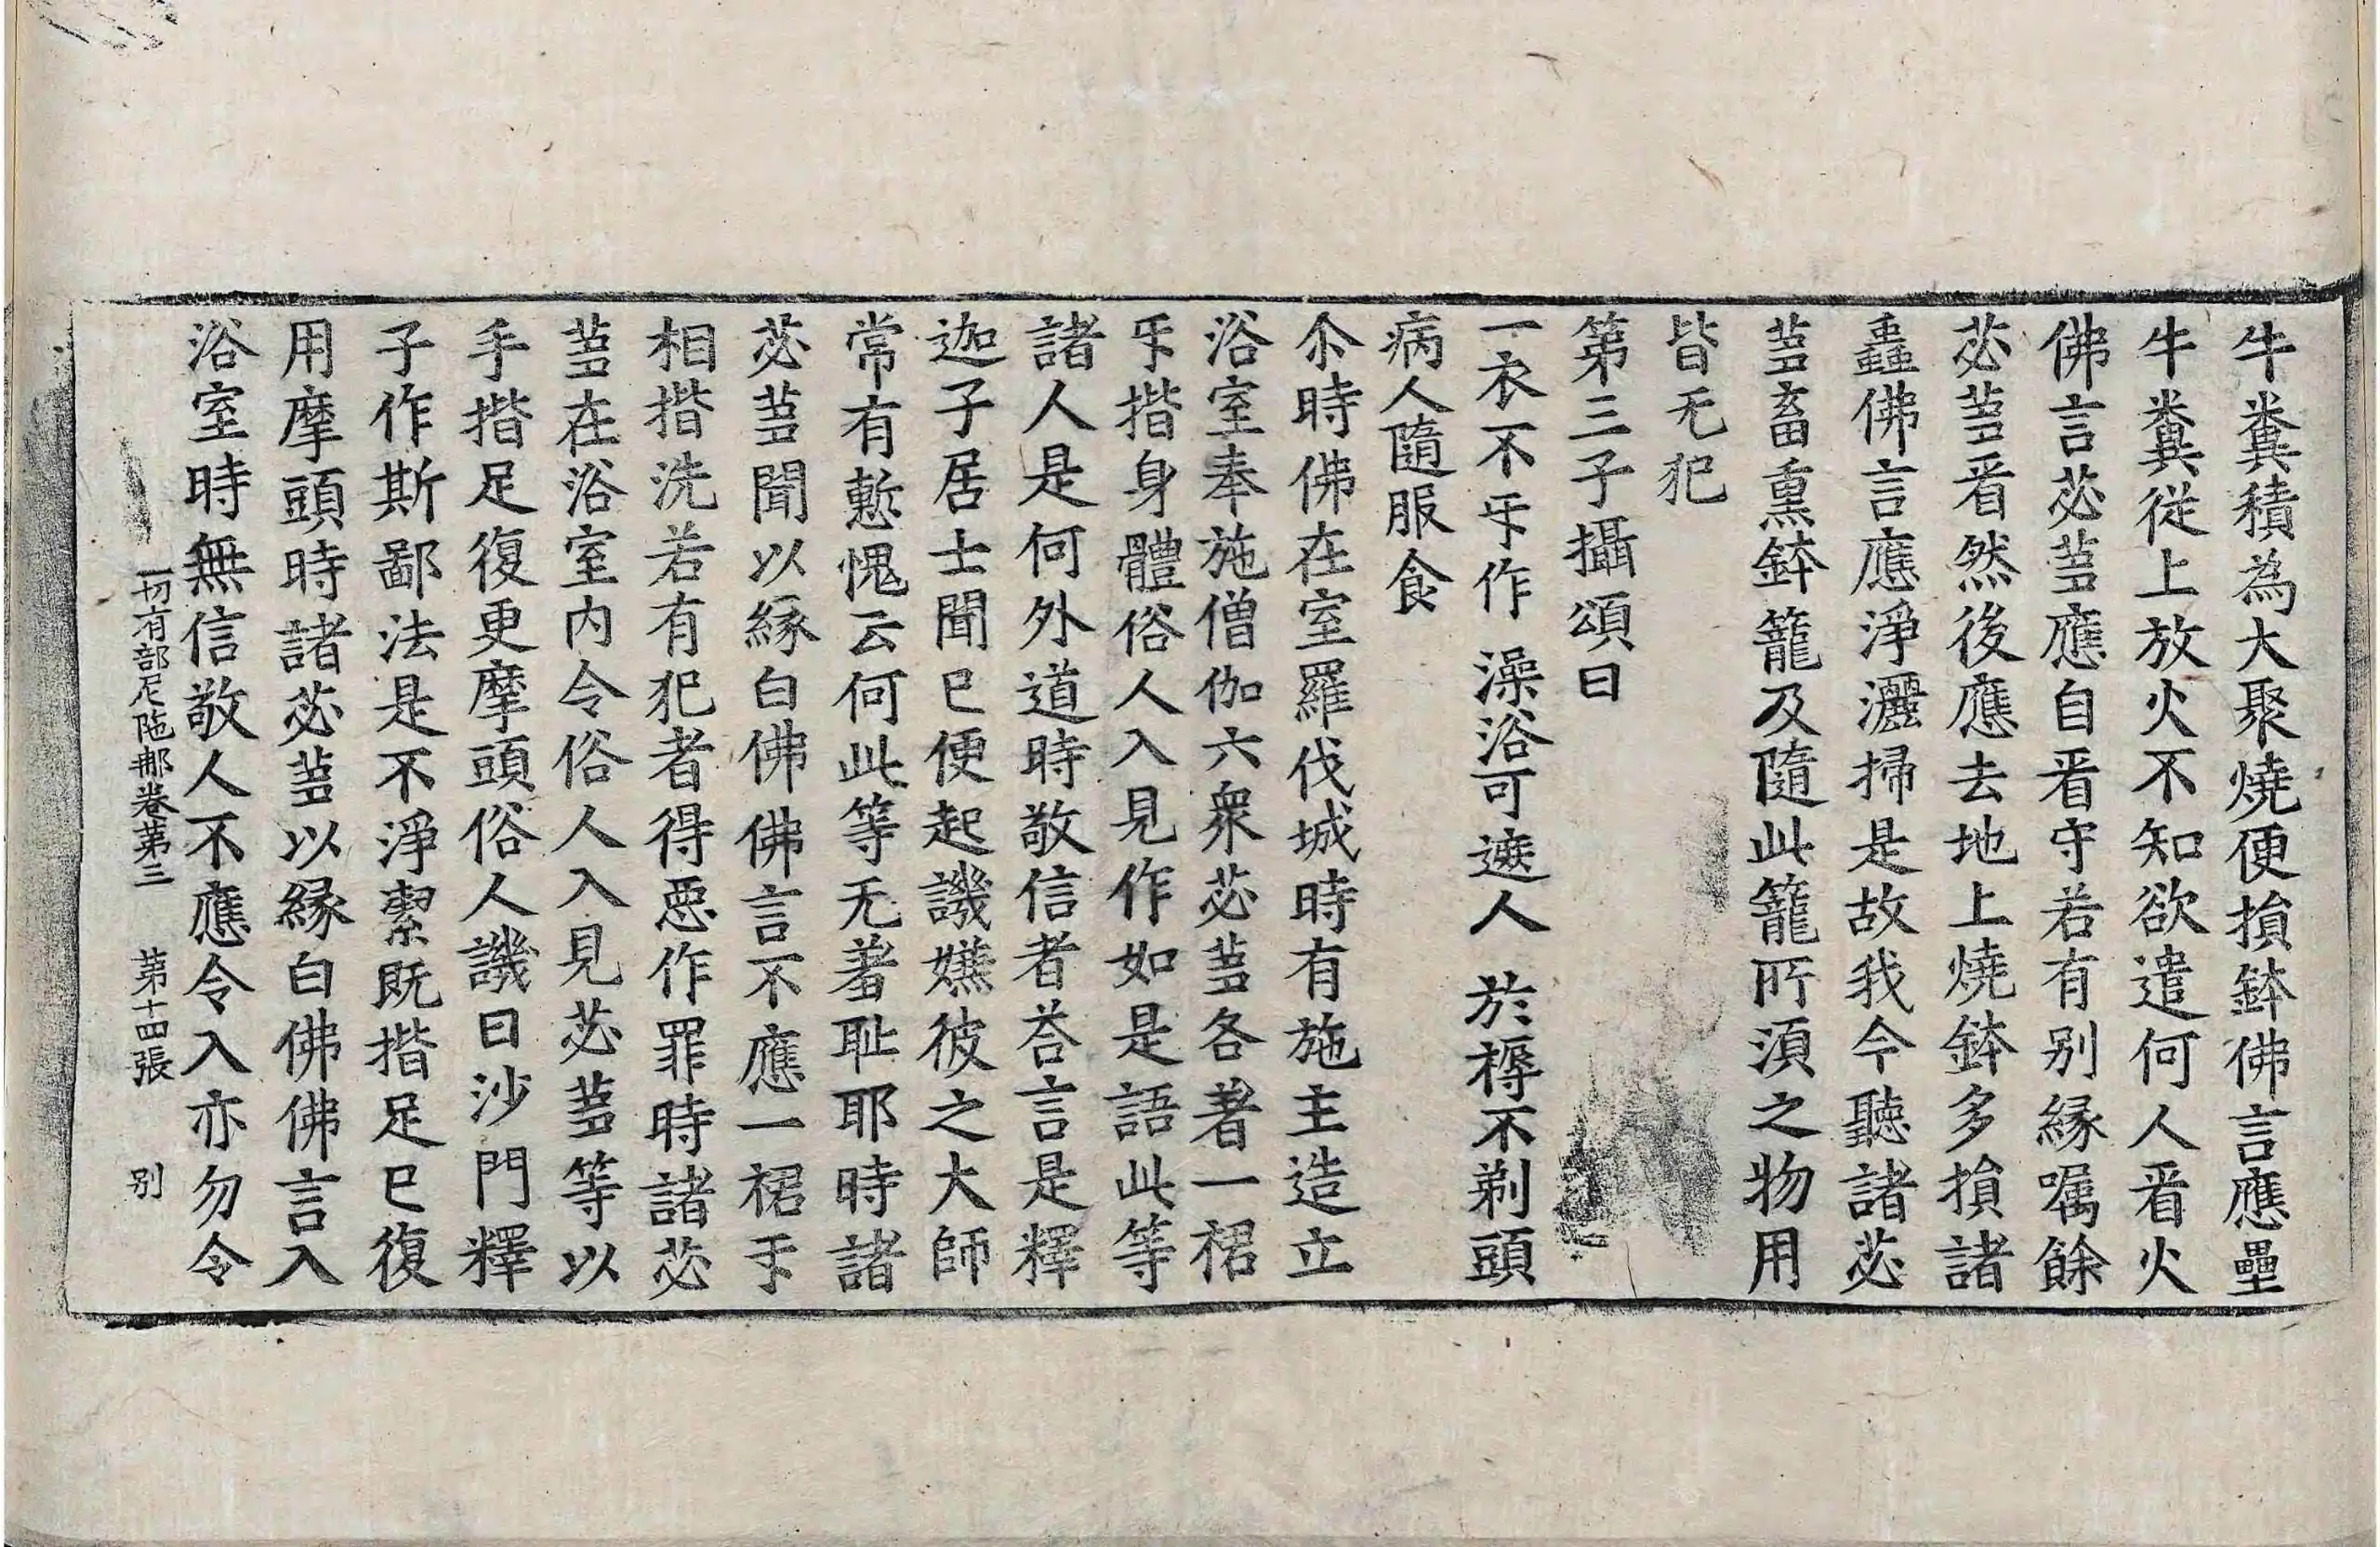 牛糞積為大聚燒便損鉢佛言應壘
牛糞從上放火不知欲遣何人㸔火
佛言苾蒭應自㸔守若有别緣囑餘
苾蒭㸔然後應去地上燒鉢多損諸
蟲佛言應淨灑掃是故我今聽諸苾
蒭畜熏鉢籠及隨此籠所湏之物用
皆无犯
第三子攝頌曰
一衣不㸦作　澡浴可遮人　於褥不剃頭
病人隨服食
尒時佛在室羅伐城時有施主造立
浴室奉施僧伽六衆苾蒭各著一裙
㸦揩身體俗人入見作如是語此等
諸人是何外道時敬信者荅言是釋
迦子居士聞已便起譏嫌彼之大師
常有慙愧云何此等无羞耻耶時諸
苾蒭聞以緣白佛佛言不應一裙㸦
相揩洗若有犯者得惡作罪時諸苾
蒭在浴室内令俗人入見苾蒭等以
手揩足復更摩頭俗人譏曰沙門釋
子作斯鄙法是不淨潔既揩足已復
用摩頭時諸苾蒭以緣白佛佛言入
浴室時無信敬人不應令入亦勿令
一切有部尼陁那卷第三　第十四張　别